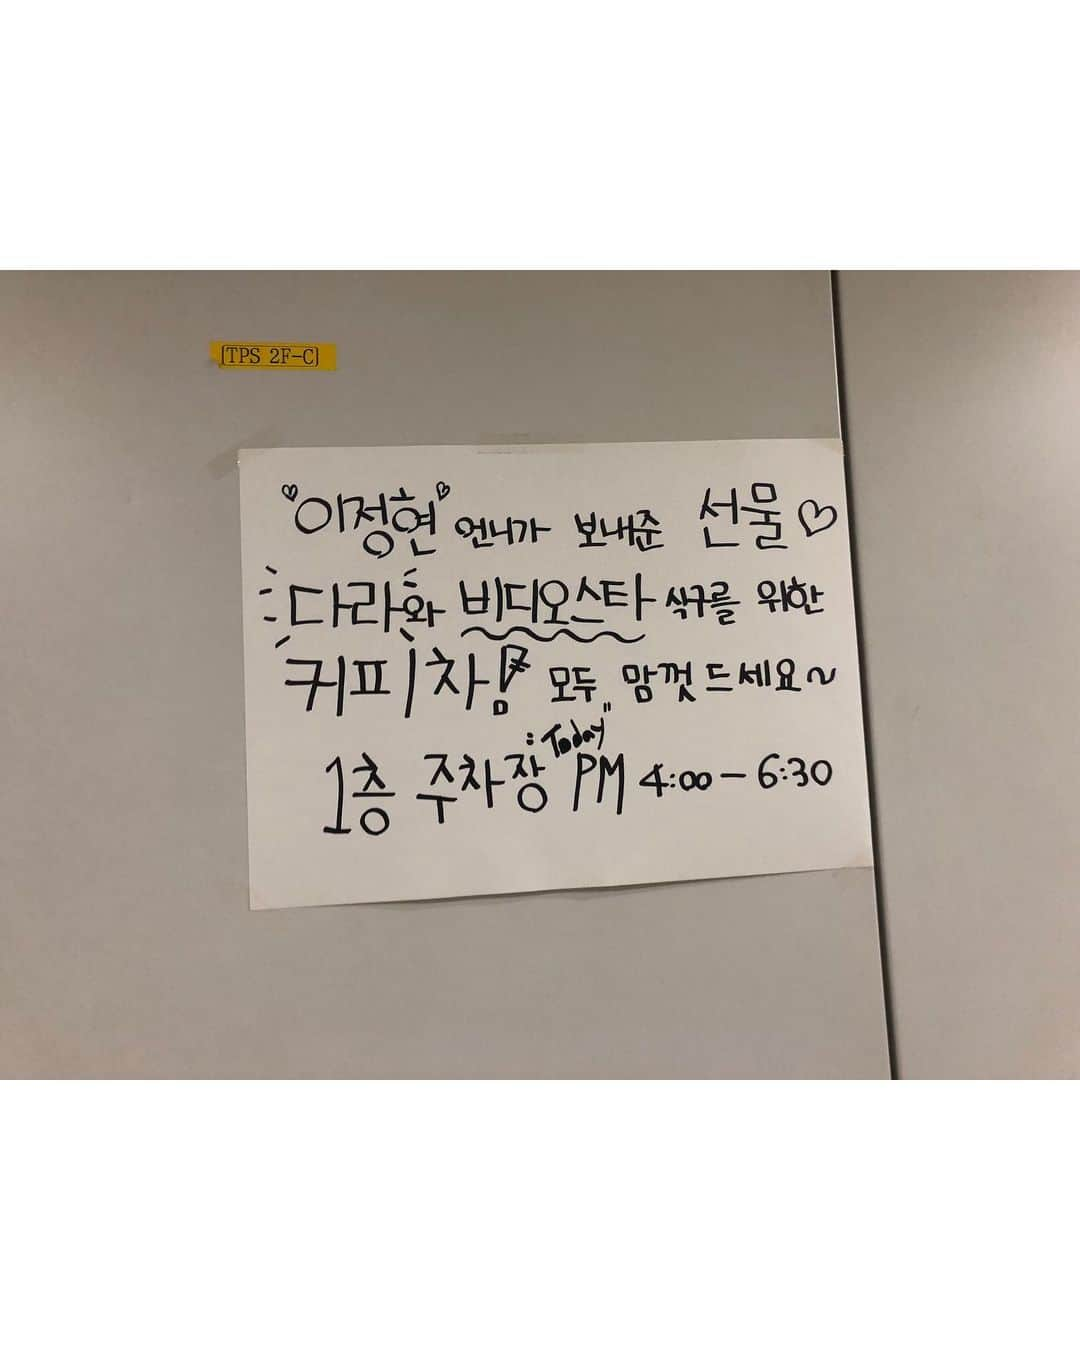 [TPS 2F-C]
"이정현" 언니가 보내준 선물♡
다라와 비디오스타 식구를 위한
커피차! 모두 맘껏 드세요~
: "Today"
1층 주차장 PM 4:00 - 6:30